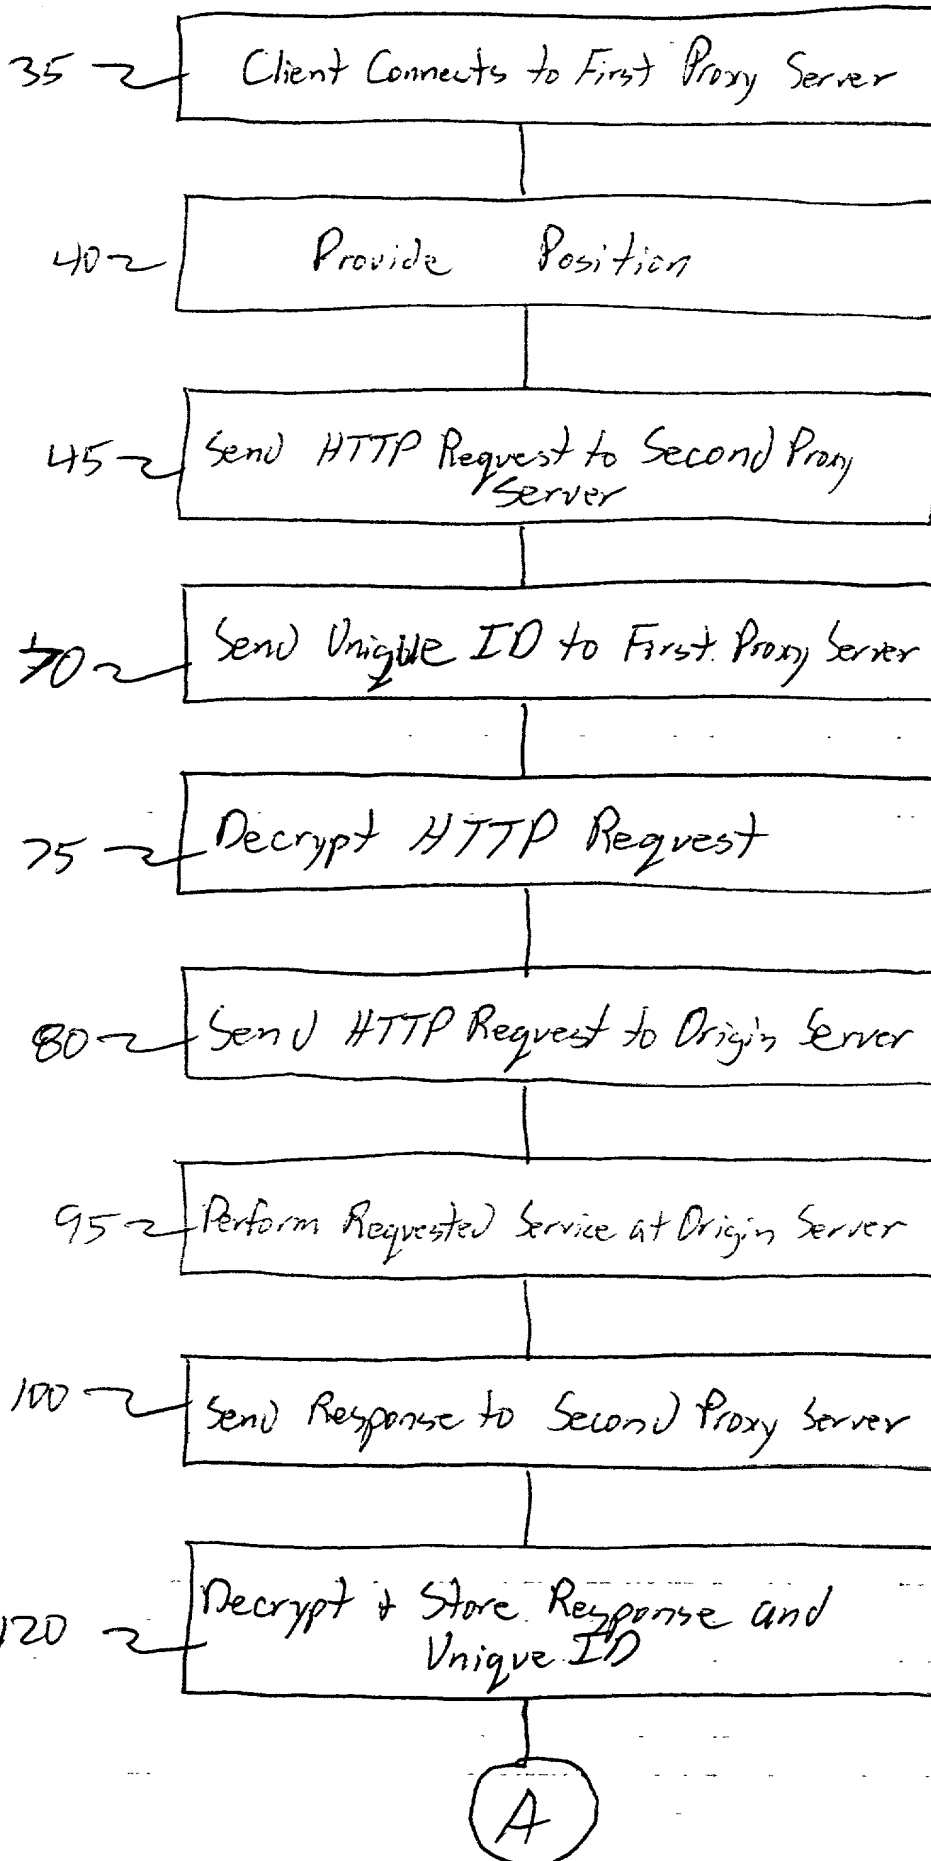 35 Client Connects to First Proxy Server
40 Provide Position
45 Send HTTP Request to Second Proxy
Server
70 Send Unique ID to First Proxy Server
75 Decrypt HTTP Request
80 Send HTTP Request to Origin Server
95 Perform Requested Service at Origin Server
100 Send Response to Second Proxy Server
120 Decrypt + Store Response and
Unique ID
A